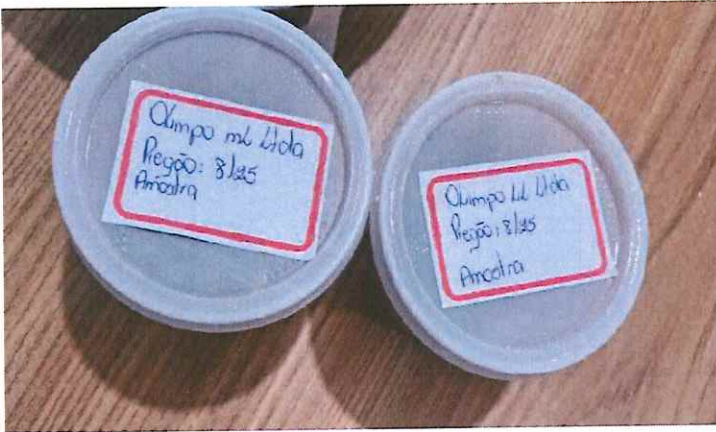 Olimpo ML Ltda
Pregão: 8/25
Amostra
Olimpo LL Ltda
Pregão: 8/25
Amostra